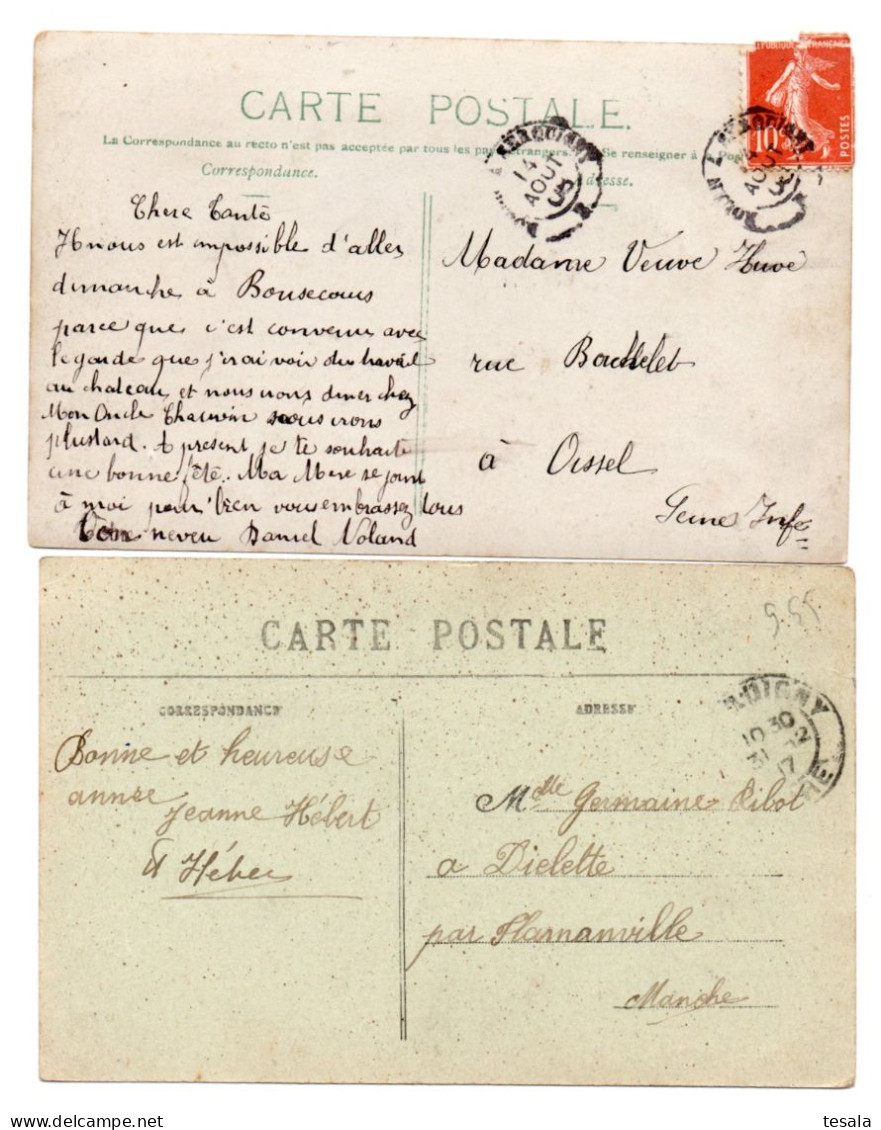 CARTE POSTALE
La Correspondance au recto n'est pas acceptée par tous les pays étrangers. Se renseigner à
Correspondance.
Adresse.
RÉPUBLIQUE FRANÇAISE
10
POSTES
14
AOUT
Chere Tante
Il nous est impossible d'aller
dimanche à Bonsecours
parce que c'est convenu avec
le garde que j'irai voir du travail
au chateau, et nous irons diner chez
Mon Oncle Chauvin nous irons
plustard. A present je te souhaite
une bonne fête. Ma Mere se joint
à moi pour bien vous embrassez tous
Votre neveu Daniel Voland
Madame Veuve Huve
rue
à Oissel
Seine Infre
9.55
CARTE POSTALE
CORRESPONDANCE
ADRESSE
10 30
31 12
17
Bonne et heureuse
année
Jeanne Hébert
Melle Germaine Ribot
a Dielette
par Flamanville
Manche
tesala